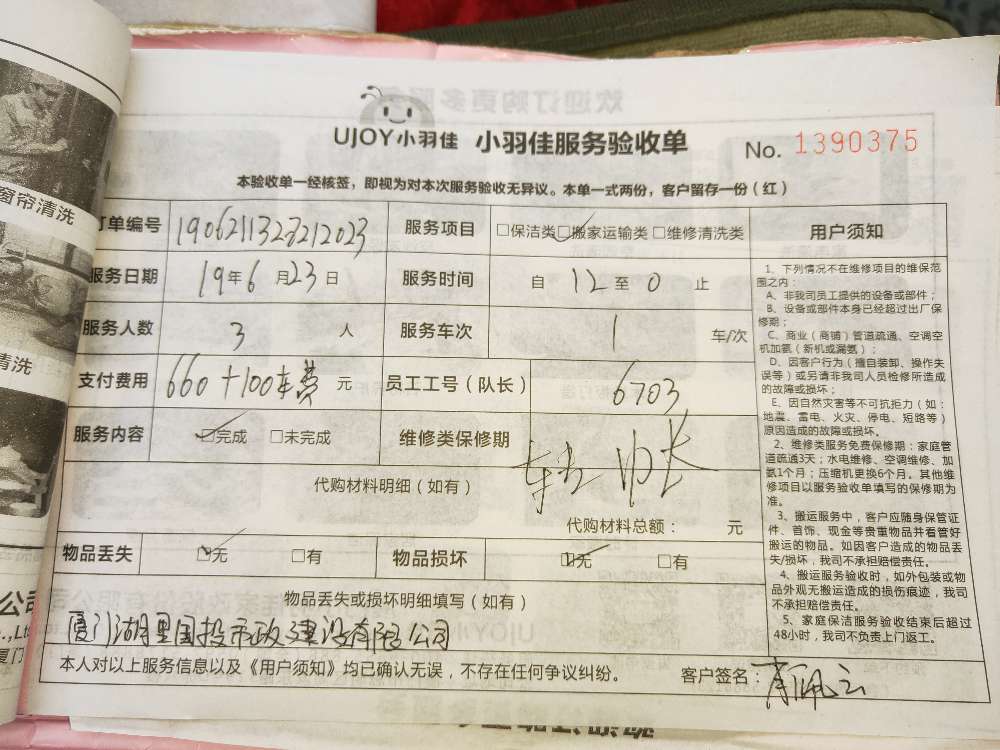 窗帘清洗
清洗
UJOY小羽佳 小羽佳服务验收单 No. 1390375
本验收单一经核签，即视为对本次服务验收无异议。本单一式两份，客户留存一份（红）
订单编号 1906211328212023 服务项目 □保洁类 □搬家运输类 □维修清洗类
服务日期 19年6月23日 服务时间 自12至0止
服务人数 3人 服务车次 1 车/次
支付费用 660+100车费 元 员工工号（队长） 6703
服务内容 □完成 □未完成 维修类保修期
代购材料明细（如有）
代购材料总额： 元
物品丢失 □无 □有 物品损坏 □无 □有
物品丢失或损坏明细填写（如有）
厦门湖里国投市政建设有限公司
本人对以上服务信息以及《用户须知》均已确认无误，不存在任何争议纠纷。 客户签名：
用户须知
1、下列情况不在维修项目的维保范
围之内：
A、非我司员工提供的设备或部件；
B、设备或部件本身已经超过出厂保
修期；
C、商业（商铺）管道疏通、空调空
机加氨（新机或漏氨）；
D、因客户行为（擅自装卸、操作失
误等）或另请非我司人员检修所造成
的故障或损坏；
E、因自然灾害等不可抗拒力（如：
地震、雷电、火灾、停电、短路等）
原因造成的故障或损坏。
2、维修类服务免费保修期：家庭管
道疏通3天；水电维修、空调维修、加
氨1个月；压缩机更换6个月。其他维
修项目以服务验收单填写的保修期为
准。
3、搬运服务中，客户应随身保管证
件、首饰、现金等贵重物品并看管好
搬运的物品。如因客户造成的物品丢
失/损坏，我司不承担赔偿责任。
4、搬运服务验收时，如外包装或物
品外观无搬运造成的损伤痕迹，我司
不承担赔偿责任。
5、家庭保洁服务验收结束后超过
48小时，我司不负责上门返工。